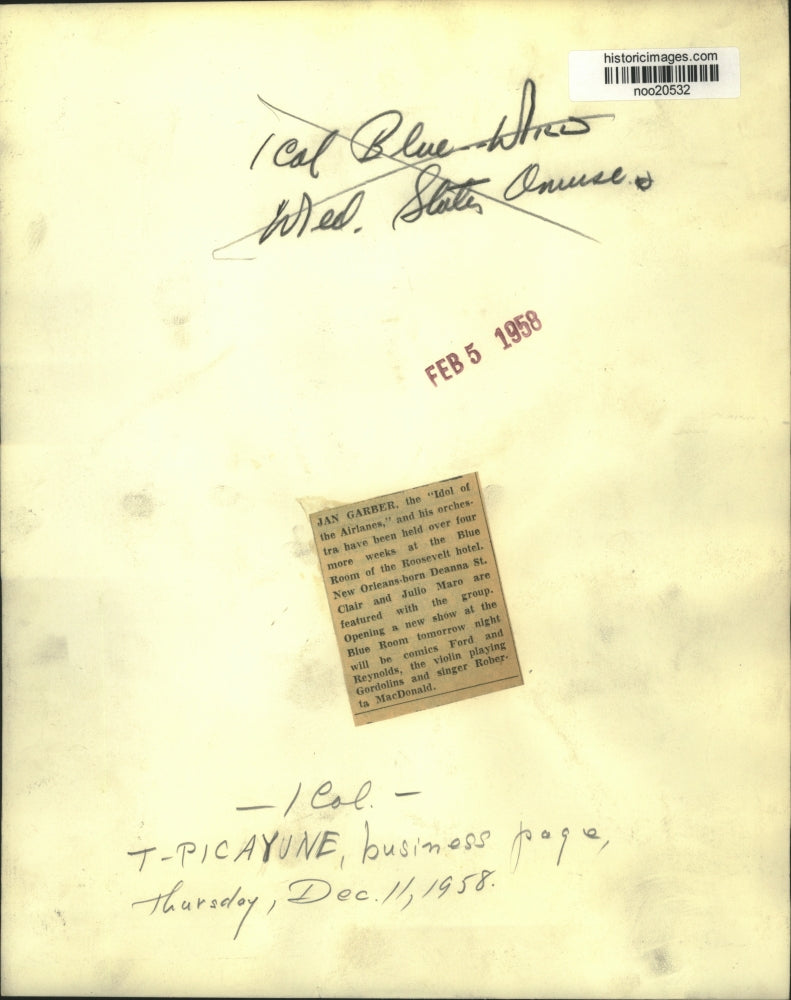 historicimages.com
noo20532
1 Col Blue
Wed. States Amuse.
FEB 5 1958
JAN GARBER, the "Idol of
the Airlanes," and his orches-
tra have been held over four
more weeks at the Blue
Room of the Roosevelt hotel.
New Orleans-born Deanna St.
Clair and Julio Maro are
featured with the group.
Opening a new show at the
Blue Room tomorrow night
will be comics Ford and
Reynolds, the violin playing
Gordolins and singer Rober-
ta MacDonald.
— 1 Col. —
T-PICAYUNE, business page,
Thursday, Dec. 11, 1958.